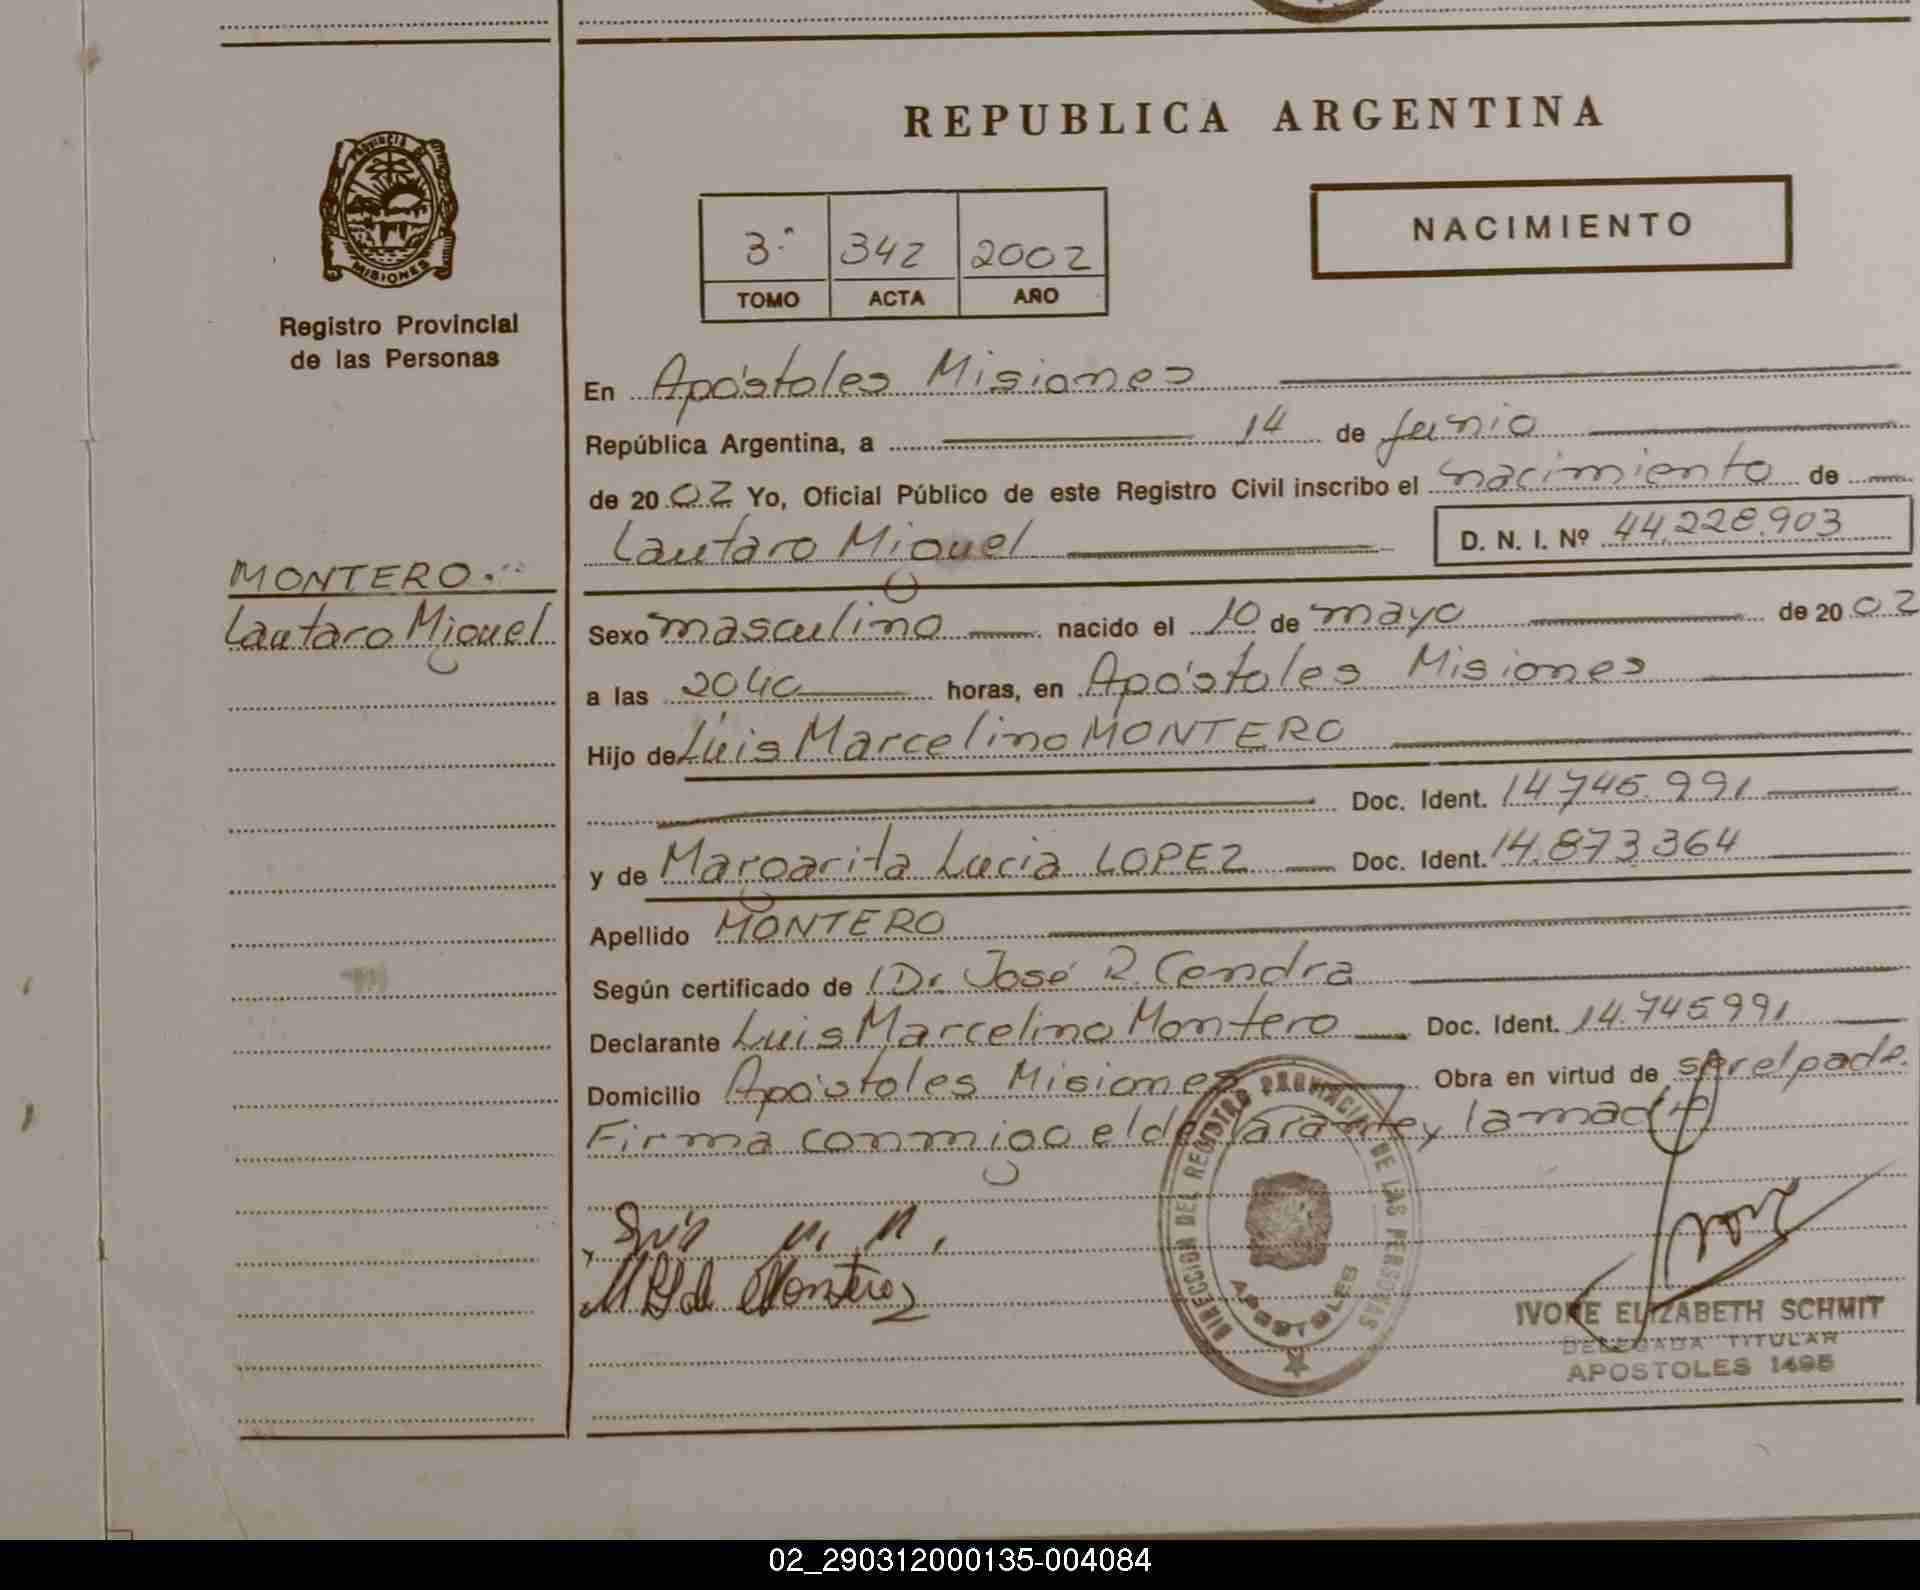 REPUBLICA ARGENTINA
PROVINCIA DE
MISIONES
Registro Provincial
de las Personas
3.ª 342 2002
TOMO ACTA AÑO
NACIMIENTO
En Apóstoles Misiones
República Argentina, a 14 de junio
de 2002 Yo, Oficial Público de este Registro Civil inscribo el nacimiento de
Lautaro Miguel D. N. I. Nº 44,228.903
MONTERO.
Lautaro Miguel
Sexo masculino nacido el 10 de mayo de 2002
a las 2040 horas, en Apóstoles Misiones
Hijo de Luis Marcelino MONTERO
Doc. Ident. 14.745.991
y de Margarita Lucia LOPEZ Doc. Ident. 14.873.364
Apellido MONTERO
Según certificado de Dr. José R. Cendra
Declarante Luis Marcelino Montero Doc. Ident. 14.745.991
Domicilio Apóstoles Misiones Obra en virtud de ser el padre.
Firma conmigo el declarante y la madre
DIRECCION DEL REGISTRO PROVINCIAL DE LAS PERSONAS
APOSTOLES
de Montero
IVONE ELIZABETH SCHMIT
DELEGADA TITULAR
APOSTOLES 1495
02_290312000135-004084